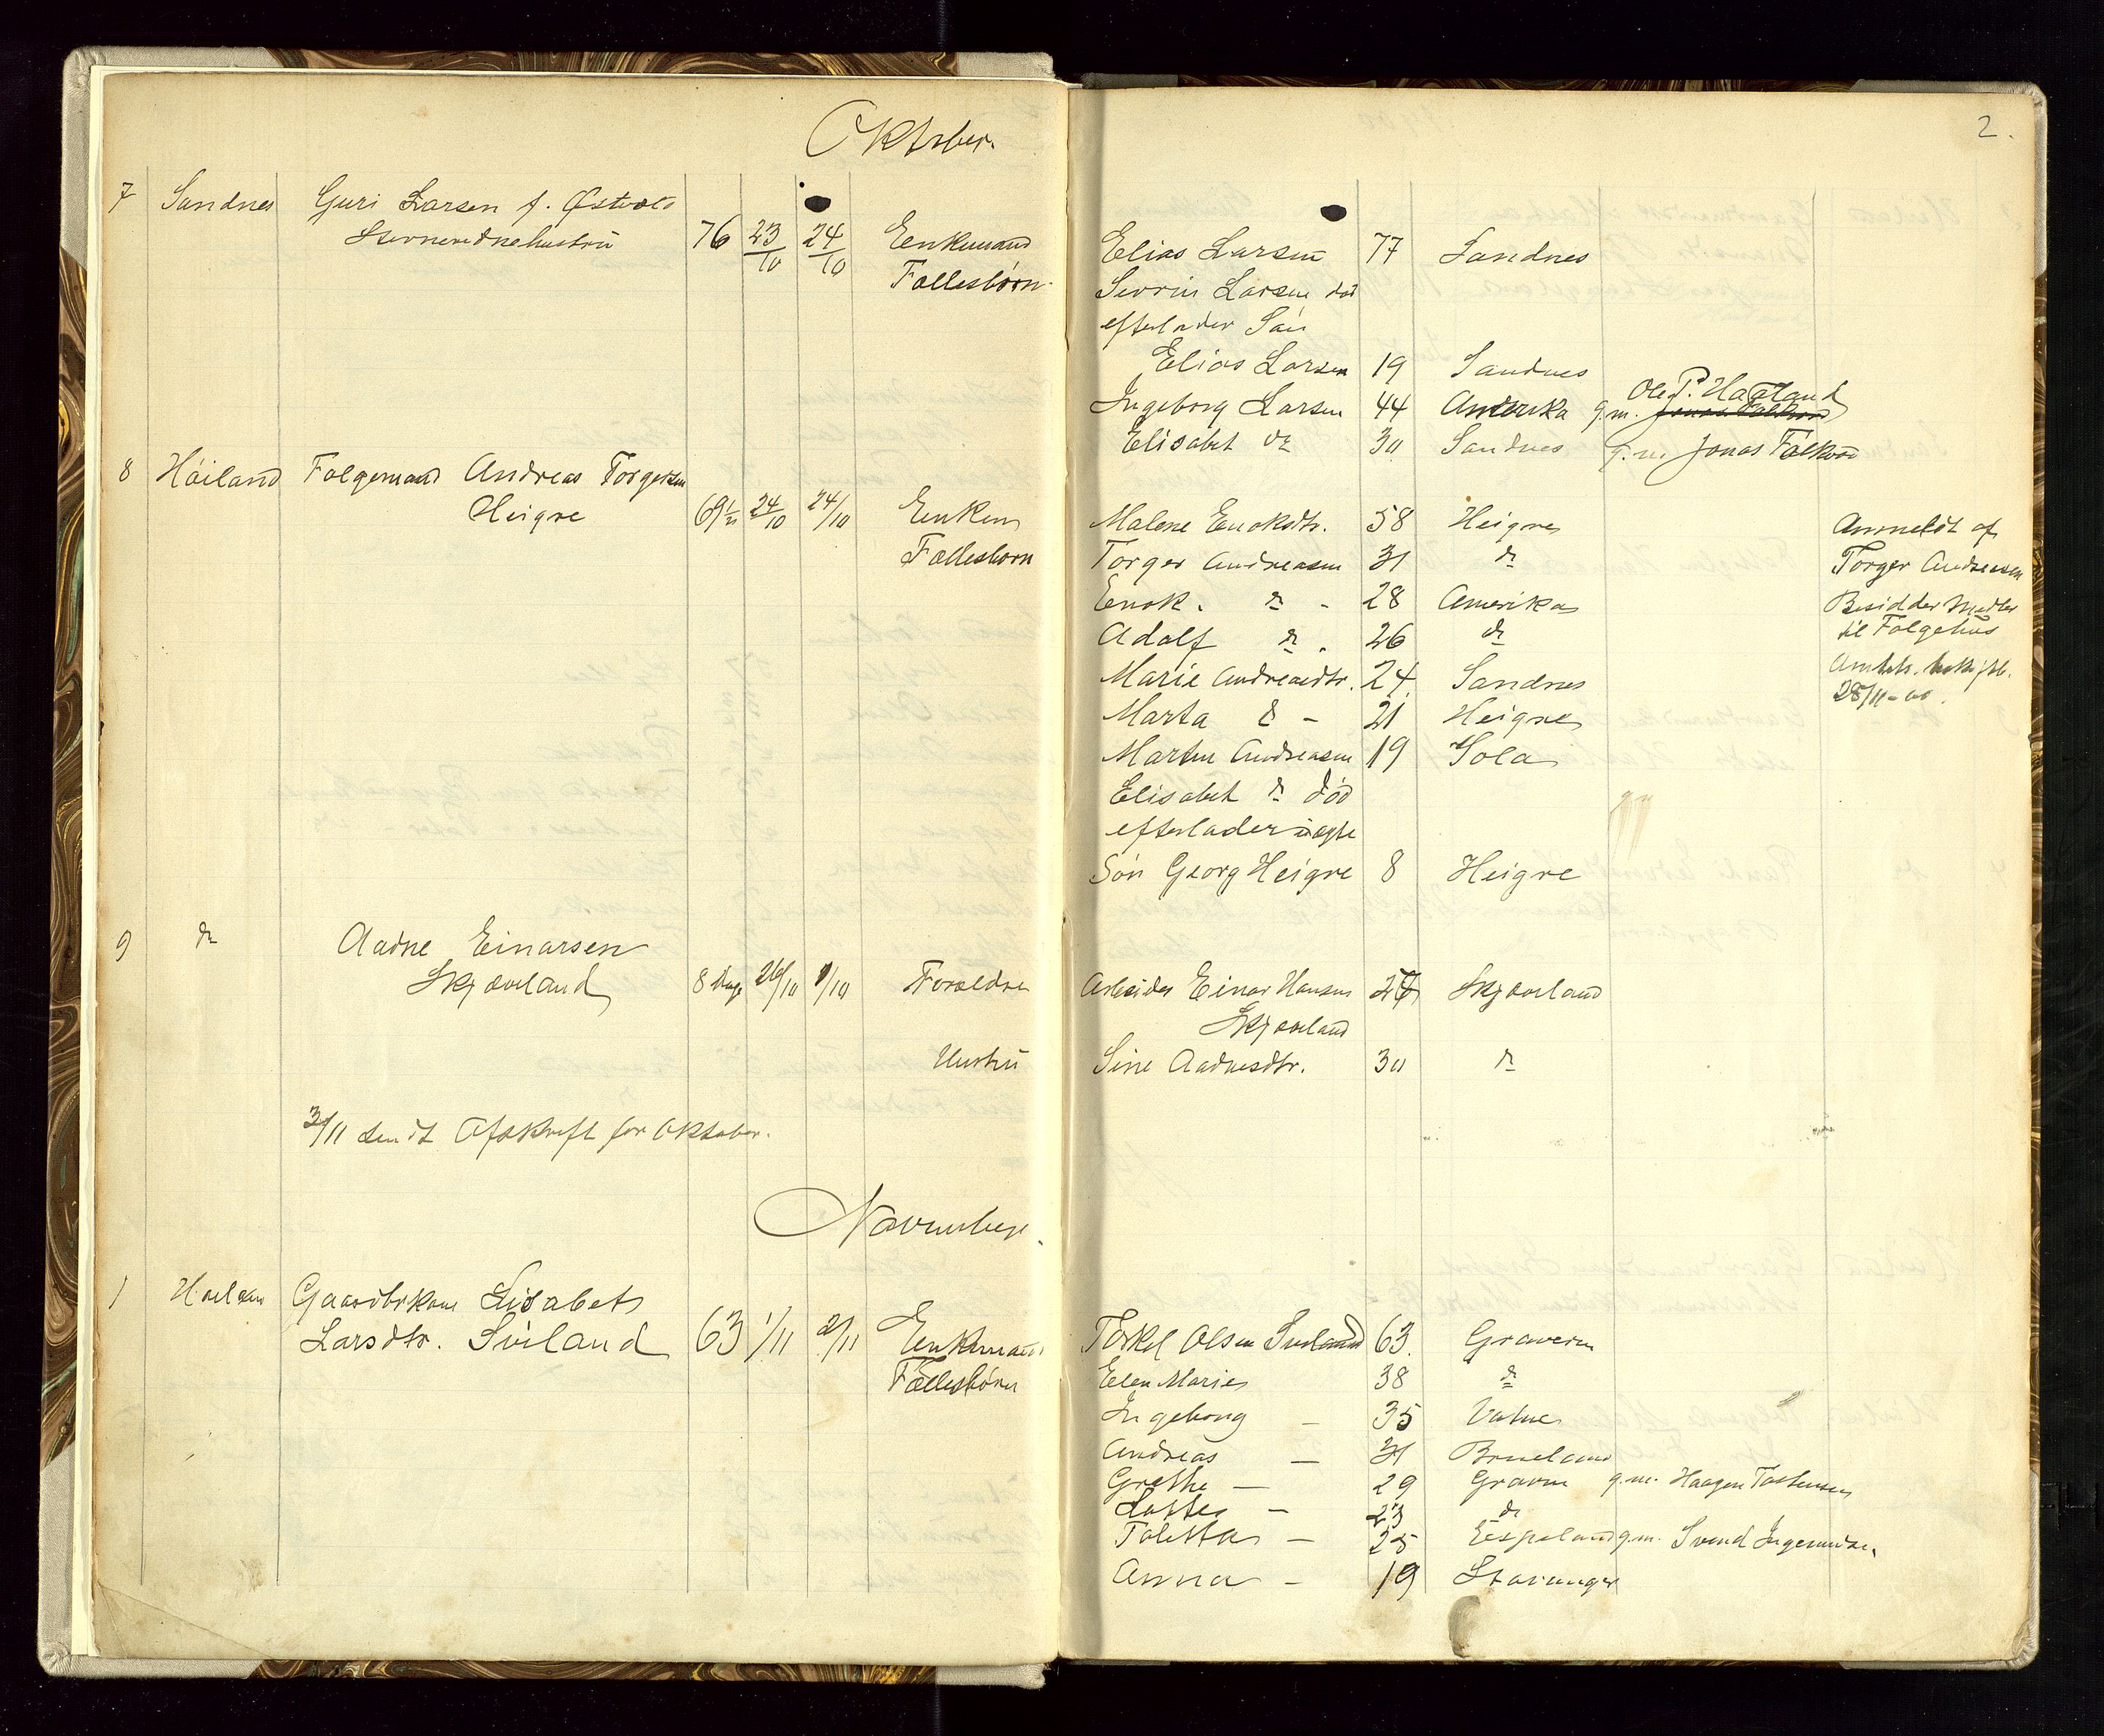 Oktober.
2.
7 Sandnes Guri Larsen f. Østvold
76 23/10 24/10 Enkemand
Fællesbørn
Elias Larsen 77 Sandnes
Sevrin Larsen død
efterlader Søn
Elias Larsen 19 Sandnes
Ole P. Hagland
Ingeborg Larsen 44 Amerika g.m.
Elisabet do 30 Sandnes g.m. Jonas Falkeid
8 Høiland Folgemand Andreas Torgersen
Heigre 69½ 24/10 24/10 Enken
Fællesbørn
Malene Enoksdtr. 58 Heigre
Torger Andreasen 31 do
Enok. do - 28 Amerika
Adolf do . 26 do
Marie Andreasdtr. 24. Sandnes
Marta do - 21 Heigre
Martin Andreasen 19 Sola
Elisabet do død
efterlader uægte
Søn Georg Heigre 8 Heigre
Anmeldt af
Torger Andreasen
Besidder Midler
til Folgehus
28/11-00.
9 do Aadne Einarsen
Skjæveland 8 Dage 26/10 /10 Forældre
Arbeider Einar Hansen Skjæveland
Skjæveland
Hustru Sine Aadnesdtr. 30 do
3/11 sendt Afskrift for Oktober.
November.
1 Høiland Gaardbrkone Lisabet
Larsdtr. Sviland 63 1/11 2/11 Enkemand
Fællesbørn
Torkel Olsen Sviland 63. Graveren
Elen Marie 38 do
Ingeborg - 35 Vatne
Andreas - 31 Brueland
Grethe - 29 Graven g.m. Haagen Tostensen
Lotte - 23 do
Taletta - 25 Espeland g.m. Svend Ingemundsen
Anna - 19 Stavanger